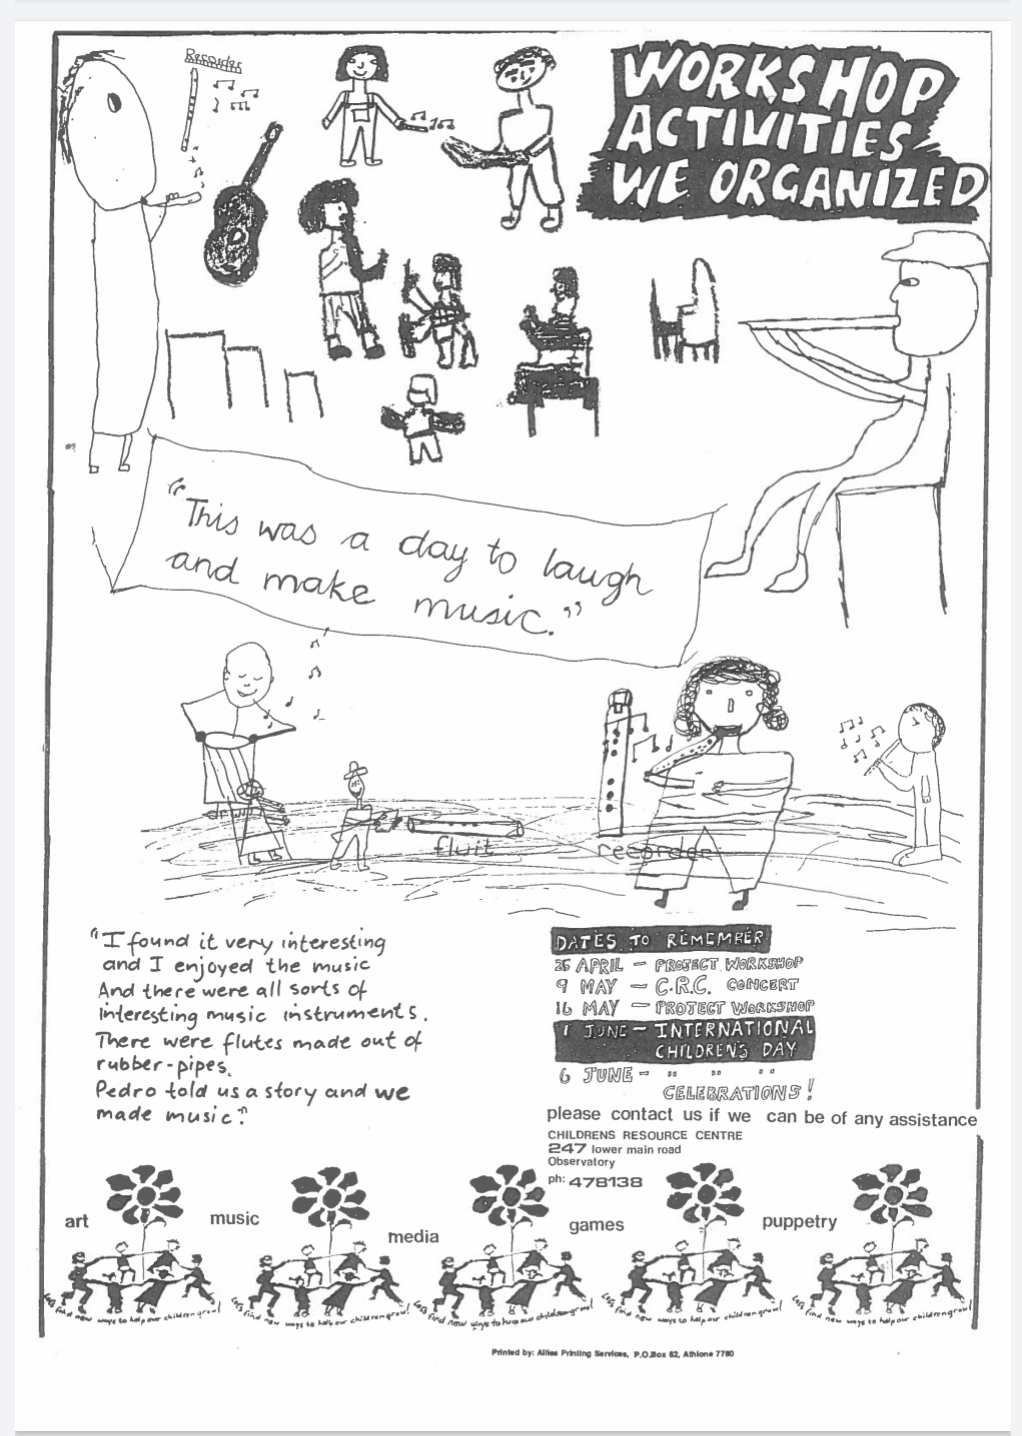 Recorder
WORKSHOP
ACTIVITIES
WE ORGANIZED
"This was a day to laugh
and make music."
drum
fluit
recorder
"I found it very interesting
and I enjoyed the music
And there were all sorts of
interesting music instruments.
There were flutes made out of
rubber-pipes.
Pedro told us a story and we
made music."
DATES TO REMEMBER
25 APRIL - PROJECT WORKSHOP
9 MAY - C.R.C. CONCERT
16 MAY - PROTECT WORKSHOP
1 JUNE - INTERNATIONAL
CHILDREN'S DAY
6 JUNE - " " "
CELEBRATIONS!
please contact us if we can be of any assistance
CHILDRENS RESOURCE CENTRE
247 lower main road
Observatory
ph: 478138
art
music
media
games
puppetry
find new ways to help our children grow!
find new ways to help our children grow!
find new ways to help our children grow!
find new ways to help our children grow!
find new ways to help our children grow!
Printed by: Allies Printing Services, P.O.Box 62, Athlone 7760